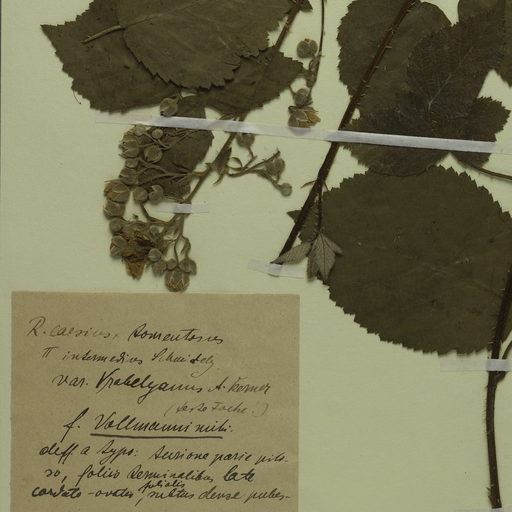 R. caesius × tomentosus
π intermedius Schmidely
var. Vrabelyanus A. Kerner
(teste Focke.)
f. Vollmanni mihi.
diff. a typo: turione parce pilo-
so, foliis terminalibus late
cordato-ovatis, foliolis subtus dense pubes-